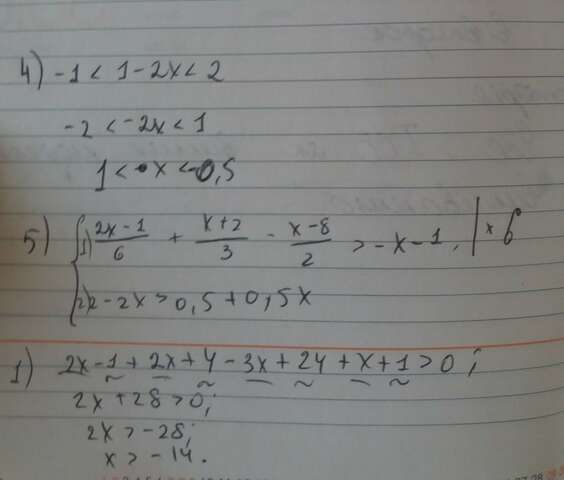 4) -1 < 1 - 2x < 2
-2 < -2x < 1
1 < x < -0,5
5) { 1) (2x-1)/6 + (x+2)/3 - (x-8)/2 > -x-1, | ×6
2) 2-2x > 0,5+0,5x
1) 2x-1+2x+4-3x+24+x+1>0;
2x+28>0;
2x>-28;
x>-14.